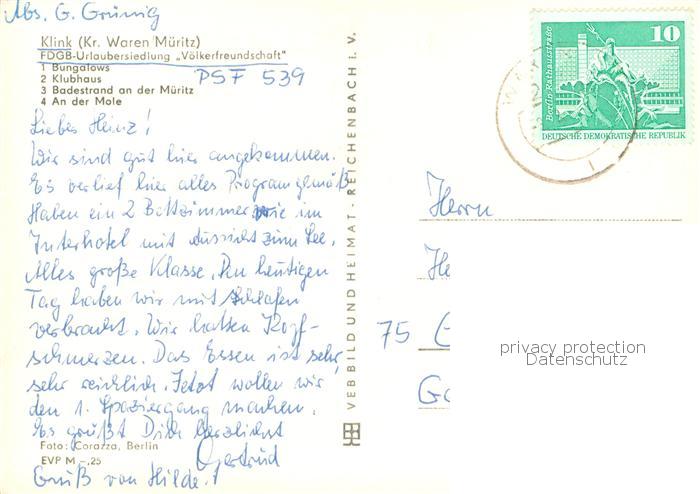 Abs. G. Grünig
Klink (Kr. Waren Müritz)
FDGB-Urlaubersiedlung „Völkerfreundschaft"
1 Bungalows
2 Klubhaus
3 Badestrand an der Müritz
4 An der Mole
PSF 539
Liebes Heinz!
Wir sind gut hier angekommen.
Es verlief hier alles Programgemäß
Haben ein 2 Bettzimmer wie im
Interhotel mit Aussicht zum See.
Alles große Klasse. Den heutigen
Tag haben wir mit schlafen
verbracht. Wir hatten Kopf-
schmerzen. Das Essen ist sehr,
sehr reichlich. Jetzt wollen wir
den 1. Spaziergang machen.
Es grüßt Dich herzlichst
Gertrud
Gruß von Hilde!
Foto: Corazza, Berlin
EVP M -,25
VEB BILD UND HEIMAT · REICHENBACH i. V.
Berlin, Rathausstraße
10
DEUTSCHE DEMOKRATISCHE REPUBLIK
Herrn
He
75
privacy protection
Datenschutz